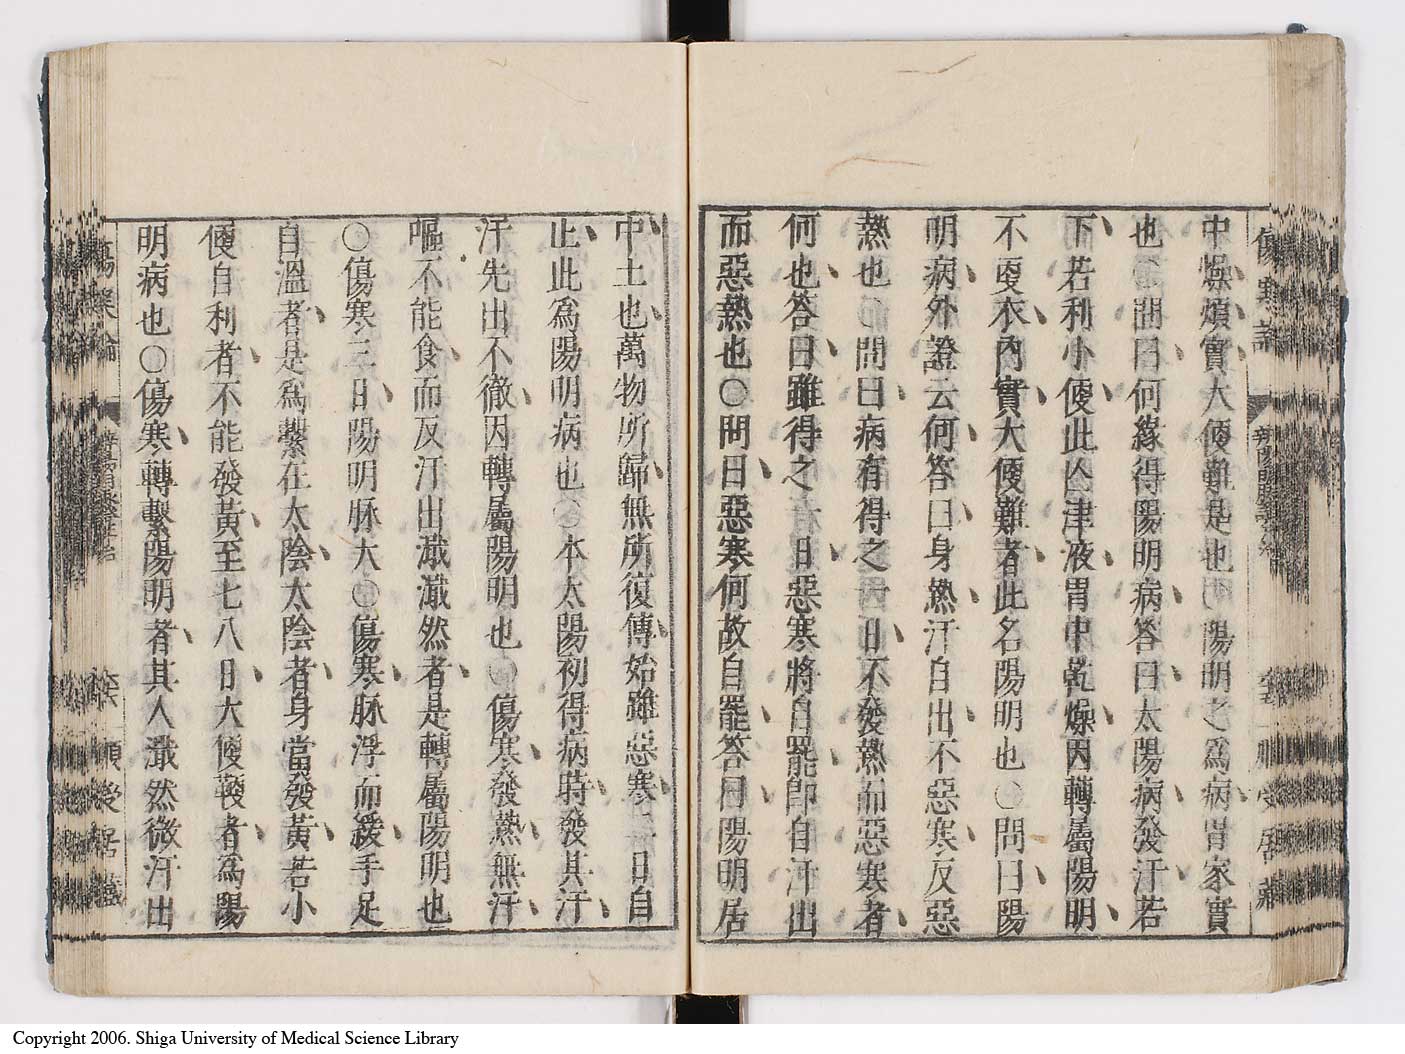 傷寒論
辨陽明脉證
居藏
中燥煩實大便難是也陽明之爲病胃家實
也〇問曰何緣得陽明病答曰太陽病發汗若
下若利小便此亾津液胃中乾燥因轉屬陽明
不更衣內實大便難者此名陽明也〇問曰陽
明病外證云何答曰身熱汗自出不惡寒反惡
熱也〇問曰病有得之一日不發熱而惡寒者
何也答曰雖得之一日惡寒將自罷卽自汗出
而惡熱也〇問曰惡寒何故自罷答曰陽明居
中土也萬物所歸無所復傳始雖惡寒二日自
止此爲陽明病也〇本太陽初得病時發其汗
汗先出不徹因轉屬陽明也〇傷寒發熱無汗
嘔不能食而反汗出濈濈然者是轉屬陽明也
〇傷寒三日陽明脉大〇傷寒脉浮而緩手足
自溫者是爲繫在太陰太陰者身當發黃若小
便自利者不能發黃至七八日大便鞕者爲陽
明病也〇傷寒轉繫陽明者其人濈然微汗出
Copyright 2006. Shiga University of Medical Science Library